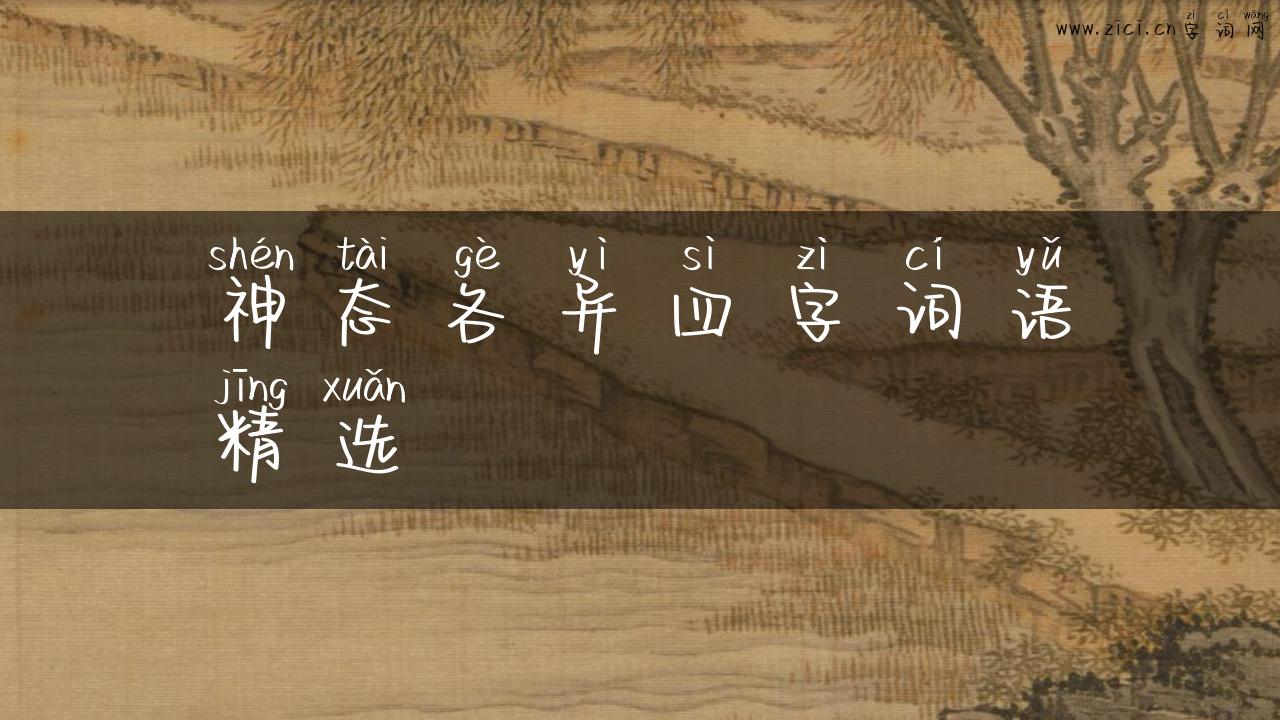 zì cí wǎng
www.zici.cn字词网
shén tài gè yì sì zì cí yǔ
神态各异四字词语
jīng xuǎn
精选